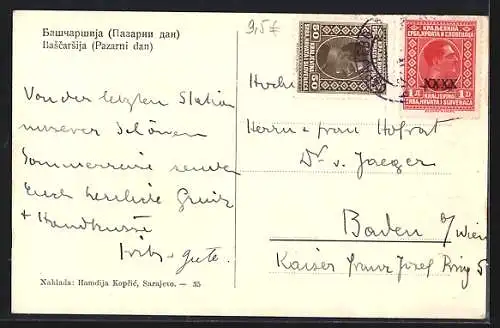 Башчаршија (Пазарни дан)
Baščaršija (Pazarni dan)
9,5€
50
50
КРАЉЕВИНА
СРБА,ХРВАТА И СЛОВЕНАЦА
XXXX
1 Д
1 D
KRALJEVINA
SRBA,HRVATA I SLOVENACA
Von der letzten Station
unserer schönen
Sommerreise senden
Euch herzliche Grüße
+ Handküsse
Hoch
Herrn u frau Hofrat
Dr v. Jaeger
Baden b/Wien
Kaiser Franz Josef Ring 5
Naklada: Hamdija Kopčić, Sarajevo. — 35